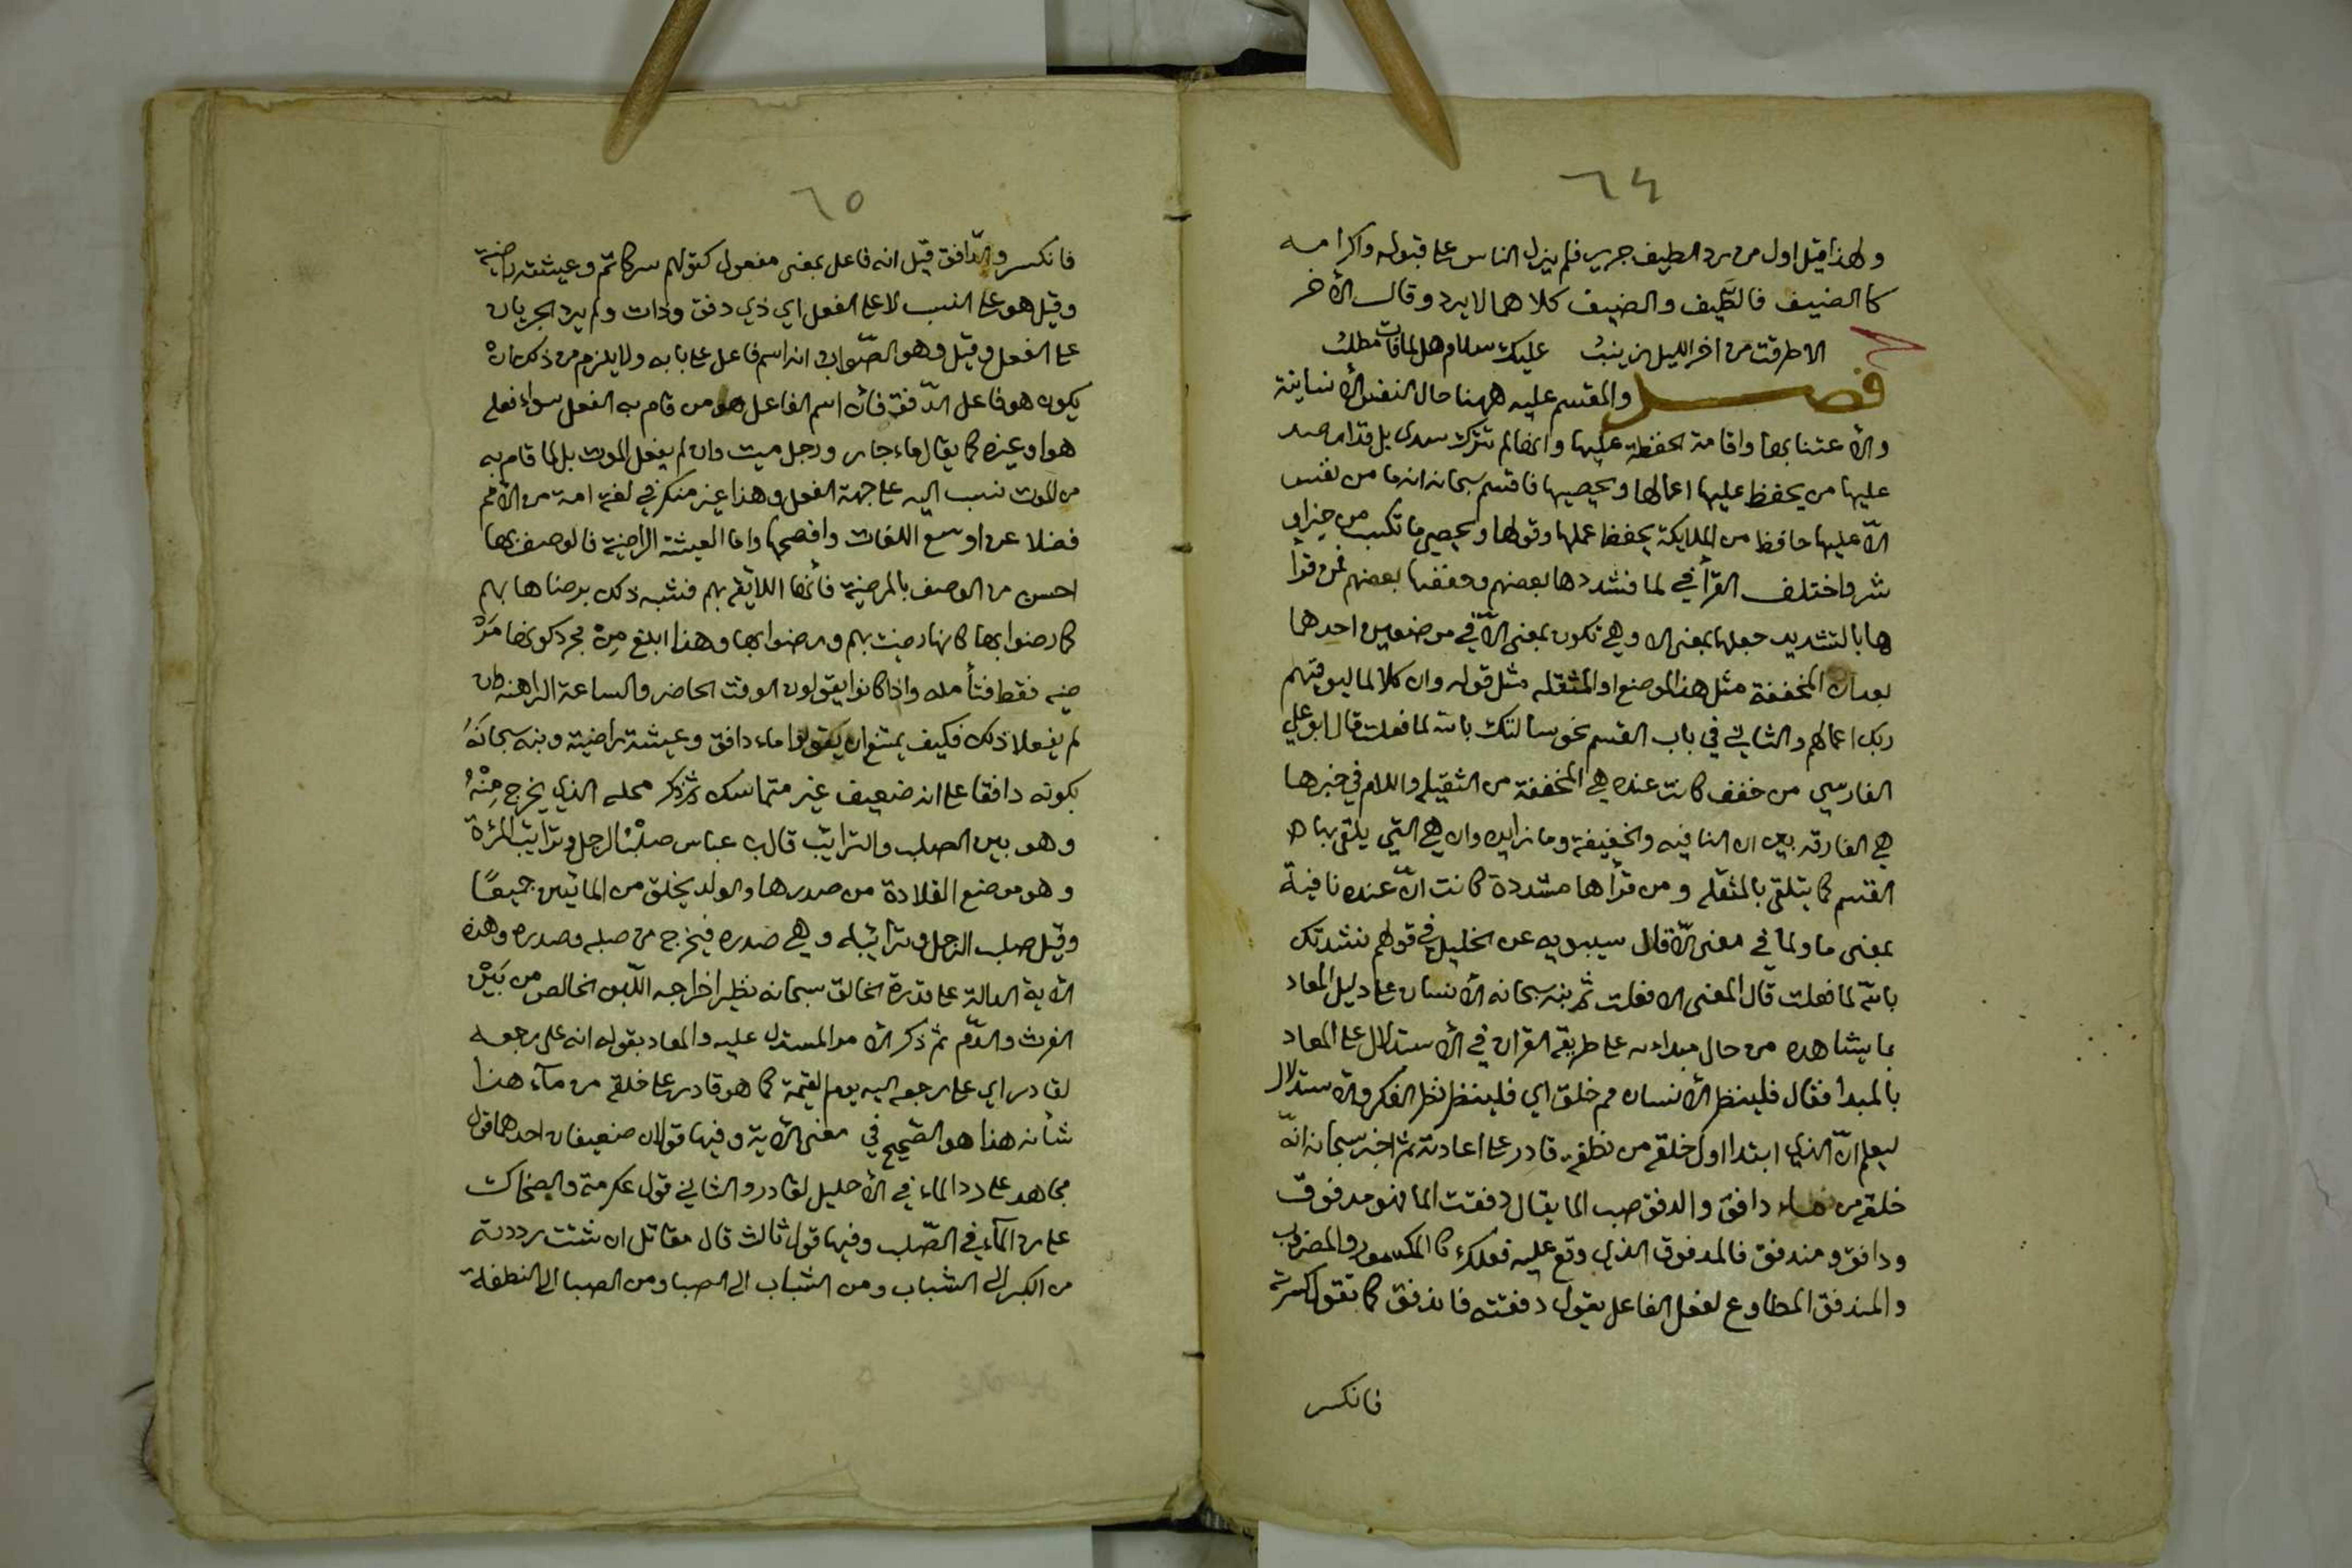 ٦٤
ولهذا قيل اول من رد الطيف جرير فلم يزل الناس على قبوله واكرامه
كالضيف فالطّيف والضيف كلاهما لا يرد وقال الأخر
الا طرقت من اخر الليل زينب عليك سلام هل لما فات مطلب
فصل والمقسم عليه ههنا حال النفس الأنسانية
والأعتنا بها واقامة الحفظة عليها وانها لم تترك سدى بل قد ارصد
عليها من يحفظ عليها اعمالها ويحصيها فاقسم سبحانه انه ما من نفس
الّا عليها حافظ من الملايكة يحفظ عملها وقولها ويحصي ما تكسب من خير او
شر واختلف القرّأ في لما فشددها بعضهم وخففها بعضهم فمن قرأ
ها بالتشديد جعلها بمعنى الا وهي تكون بمعنى الّا في موضعين احدهما
بعد ان المخففة مثل هذا الموضع او المثقله مثل قوله وان كلا لما ليوفينهم
ربك اعمالهم والثاني في باب القسم نحو سالتك بالله لما فعلت قال ابو علي
الفارسي من خفف كانت عنده هي المخففة من الثقيله واللام في خبرها
هي الفارقه بين ان النافيه والخفيفة وما زايده وان هي التي يلتقى بها
القسم كما يتلقى بالمثقله ومن قرأها مشددة كانت انّ عنده نافية
بمعنى ما ولما في معنى الّا قال سيبويه عن الخليل في قولهم نشدتك
بالله لما فعلت قال المعنى الا فعلت ثم نبه سبحانه الأنسان على دليل المعاد
بما يشاهده من حال مبداءه على طريقة القران في الأستدلال على المعاد
بالمبدأ فقال فلينظر الأنسان مم خلق اي فلينظر نظر الفكر والاستدلال
ليعلم انّ الذي ابتدا اول خلقه من نطفة قادر على اعادته ثم اخبر سبحانه انّه
خلقه من ماء دافق والدفق صب الما يقال دفقت الما فهو مدفوق
ودافق ومندفق فالمدفوق الذي وقع عليه فعلك كالمكسور والمضروب
والمندفق المطاوع لفعل الفاعل يقول دفقته فاندفق كما تقول كسرته
فانكسر
٦٥
فانكسر والدّافق قيل انه فاعل بمعنى مفعول كقولهم سر كاتم وعيشة راضية
وقيل هو على النسب لا على الفعل اي ذي دفق وذات ولم يرد الجريان
على الفعل وقيل وهو الصّواب انه اسم فاعل على بابه ولا يلزم من ذكر ان
يكون هو فاعل الدّفق فأن اسم الفاعل هو من قام به الفعل سواء فعله
هو او غيره كما يقال ماء جار ورجل ميت وان لم يفعل الموت بل لما قام به
من الموت نسب اليه على جهة الفعل وهذا غير منكر في لغة امة من الأمم
فضلا عن اوسع اللغات وافصحها واما العيشة الراضية فالوصف بها
احسن من الوصف بالمرضية فأنها اللائقة بهم فشبه ذلك برضاها بهم
كما رضوا بها كانها رضيت بهم ورضوا بها وهذا ابلغ مِنْ مجرد كونها مَرْ
ضيه فقط فتأمله واذا كانوا يقولون الوقت الحاضر والساعة الراهنه وان
لم يفعلا ذلك فكيف يمتنع ان يقولوا ماء دافق وعيشة راضية ونبه سبحانَهُ
بكونه دافقا على انه ضعيف غير متماسك ثم ذكر محله الذي يخرج مِنْهُ
وهو بين الصلب والترايب قال بن عباس صلْبُ الرجل وترايب المرئة
وهو موضع القلادة من صدرها والولد يخلق من المائين جميعًا
وقيل صلب الرجل وترائبه وهي صدره فيخرج من صلبه وصدره وهذه
الأية الدالة على قدرة الخالق سبحانه نظير اخراجه اللّبن الخالص من بَيْن
الفرث والدّم ثم ذكر الأمر المستدل عليه والمعاد بقوله انه على رجعه
لقادر اي على رجعه اليه يوم القيمة كما هو قادر على خلقه من مآء هذا
شأنه هذا هو الصّحيح في معنى الأية وفيها قولان ضعيفان احدهما قول
مجاهد على رد الماء في الأحليل لقادر والثاني قول عكرمة والضحاك
على رد المآء في الصّلب وفيها قول ثالث قال مقاتل ان شئت رددته
من الكبر الى الشباب ومن الشباب الى الصبا ومن الصبا الى النطفة